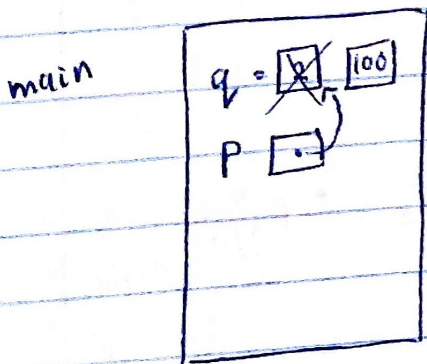 main
q = 100
P